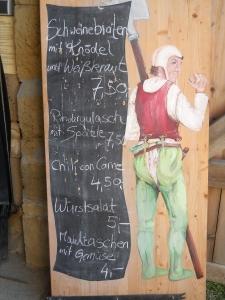 Schweinebraten
mit Knödel
und Weißkraut
7,50
Rindergulasch
mit Spätzle 7,50
Chili con Carne
4,50
Wurstsalat
5,-
Maultaschen
mit Gemüse
4,-